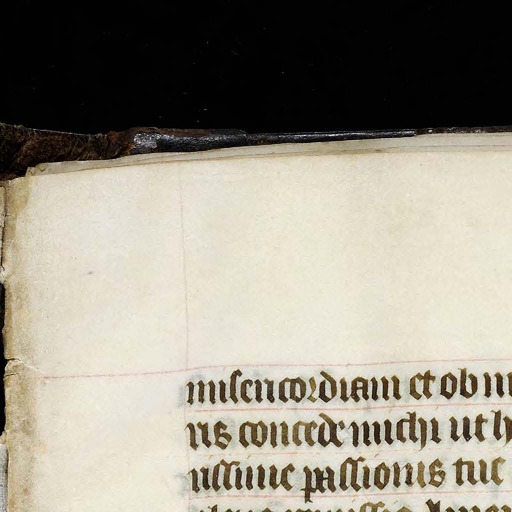 misericordiam et ob
ris concede michi ut
issime passionis tue